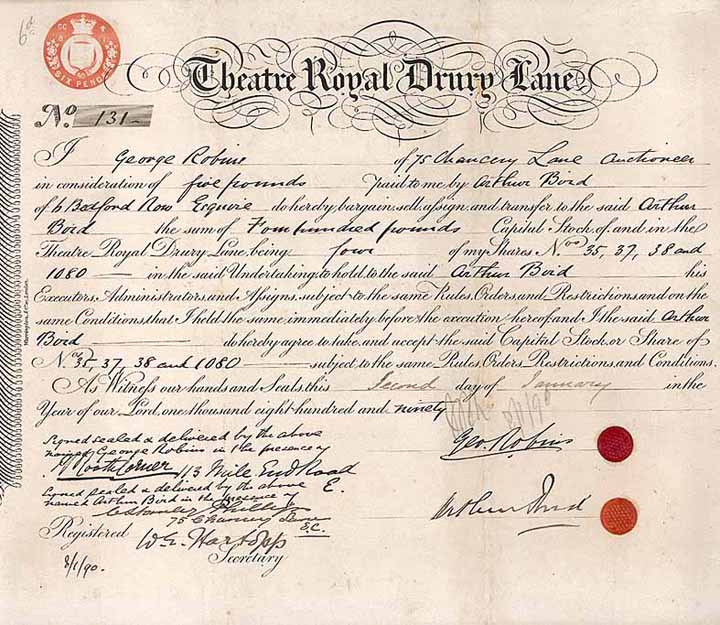 6d
SIX PENCE
Theatre Royal Drury Lane
No. 131
I George Robins of 75 Chancery Lane Auctioneer
in consideration of five pounds paid to me by Arthur Bird
of 6 Bedford Row Esquire do hereby bargain, sell, assign, and transfer to the said Arthur
Bird the sum of Four hundred pounds Capital Stock of, and in the
Theatre Royal Drury Lane, being four of my Shares Nos 35, 37, 38 and
1080 in the said Undertaking, to hold to the said Arthur Bird his
Executors, Administrators, and Assigns, subject to the same Rules, Orders, and Restrictions, and on the
same Conditions, that I held the same, immediately before the execution hereof, and I the said Arthur
Bird do hereby agree to take, and accept the said Capital Stock, or Share of
Nos 35, 37, 38 and 1080 subject to the same Rules, Orders, Restrictions, and Conditions.
As Witness our hands and Seals, this Second day of January in the
Year of our Lord, one thousand eight hundred and ninety
8/1/90
Signed sealed & delivered by the above
named George Robins in the presence of
113 Mile End Road
E.
Signed sealed & delivered by the above
named Arthur Bird in the presence of
75 Chancery Lane
Geo. Robins
Arthur Bird
Registered
Wm. Hartopp
Secretary
8/1/90.